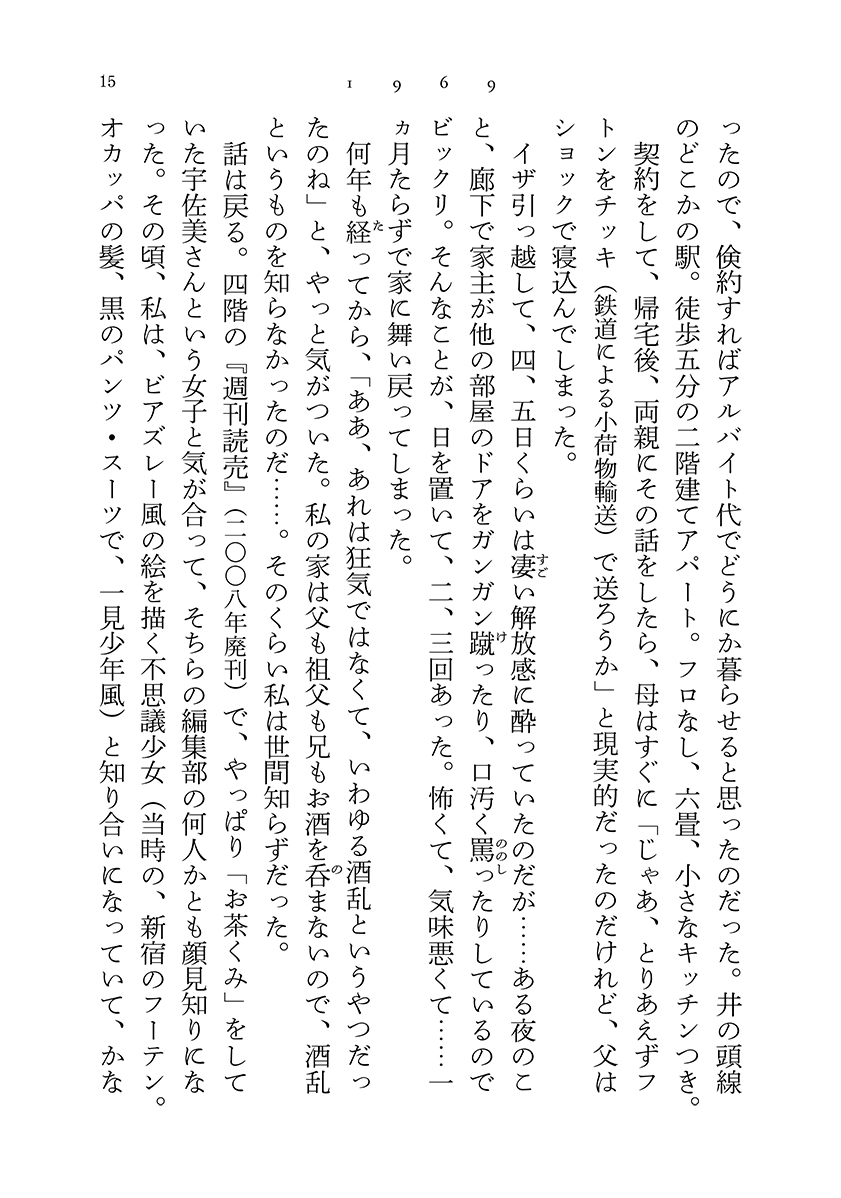 15
1969
ったので、倹約すればアルバイト代でどうにか暮らせると思ったのだった。井の頭線
のどこかの駅。徒歩五分の二階建てアパート。フロなし、六畳、小さなキッチンつき。
契約をして、帰宅後、両親にその話をしたら、母はすぐに「じゃあ、とりあえずフ
トンをチッキ（鉄道による小荷物輸送）で送ろうか」と現実的だったのだけれど、父は
ショックで寝込んでしまった。
イザ引っ越して、四、五日くらいは凄い解放感に酔っていたのだが……ある夜のこ
と、廊下で家主が他の部屋のドアをガンガン蹴ったり、口汚く罵ったりしているので
ビックリ。そんなことが、日を置いて、二、三回あった。怖くて、気味悪くて……一
ヵ月たらずで家に舞い戻ってしまった。
何年も経ってから、「ああ、あれは狂気ではなくて、いわゆる酒乱というやつだっ
たのね」と、やっと気がついた。私の家は父も祖父も兄もお酒を呑まないので、酒乱
というものを知らなかったのだ……。そのくらい私は世間知らずだった。
話は戻る。四階の『週刊読売』（二〇〇八年廃刊）で、やっぱり「お茶くみ」をして
いた宇佐美さんという女子と気が合って、そちらの編集部の何人かとも顔見知りにな
った。その頃、私は、ビアズレー風の絵を描く不思議少女（当時の、新宿のフーテン。
オカッパの髪、黒のパンツ・スーツで、一見少年風）と知り合いになっていて、かな